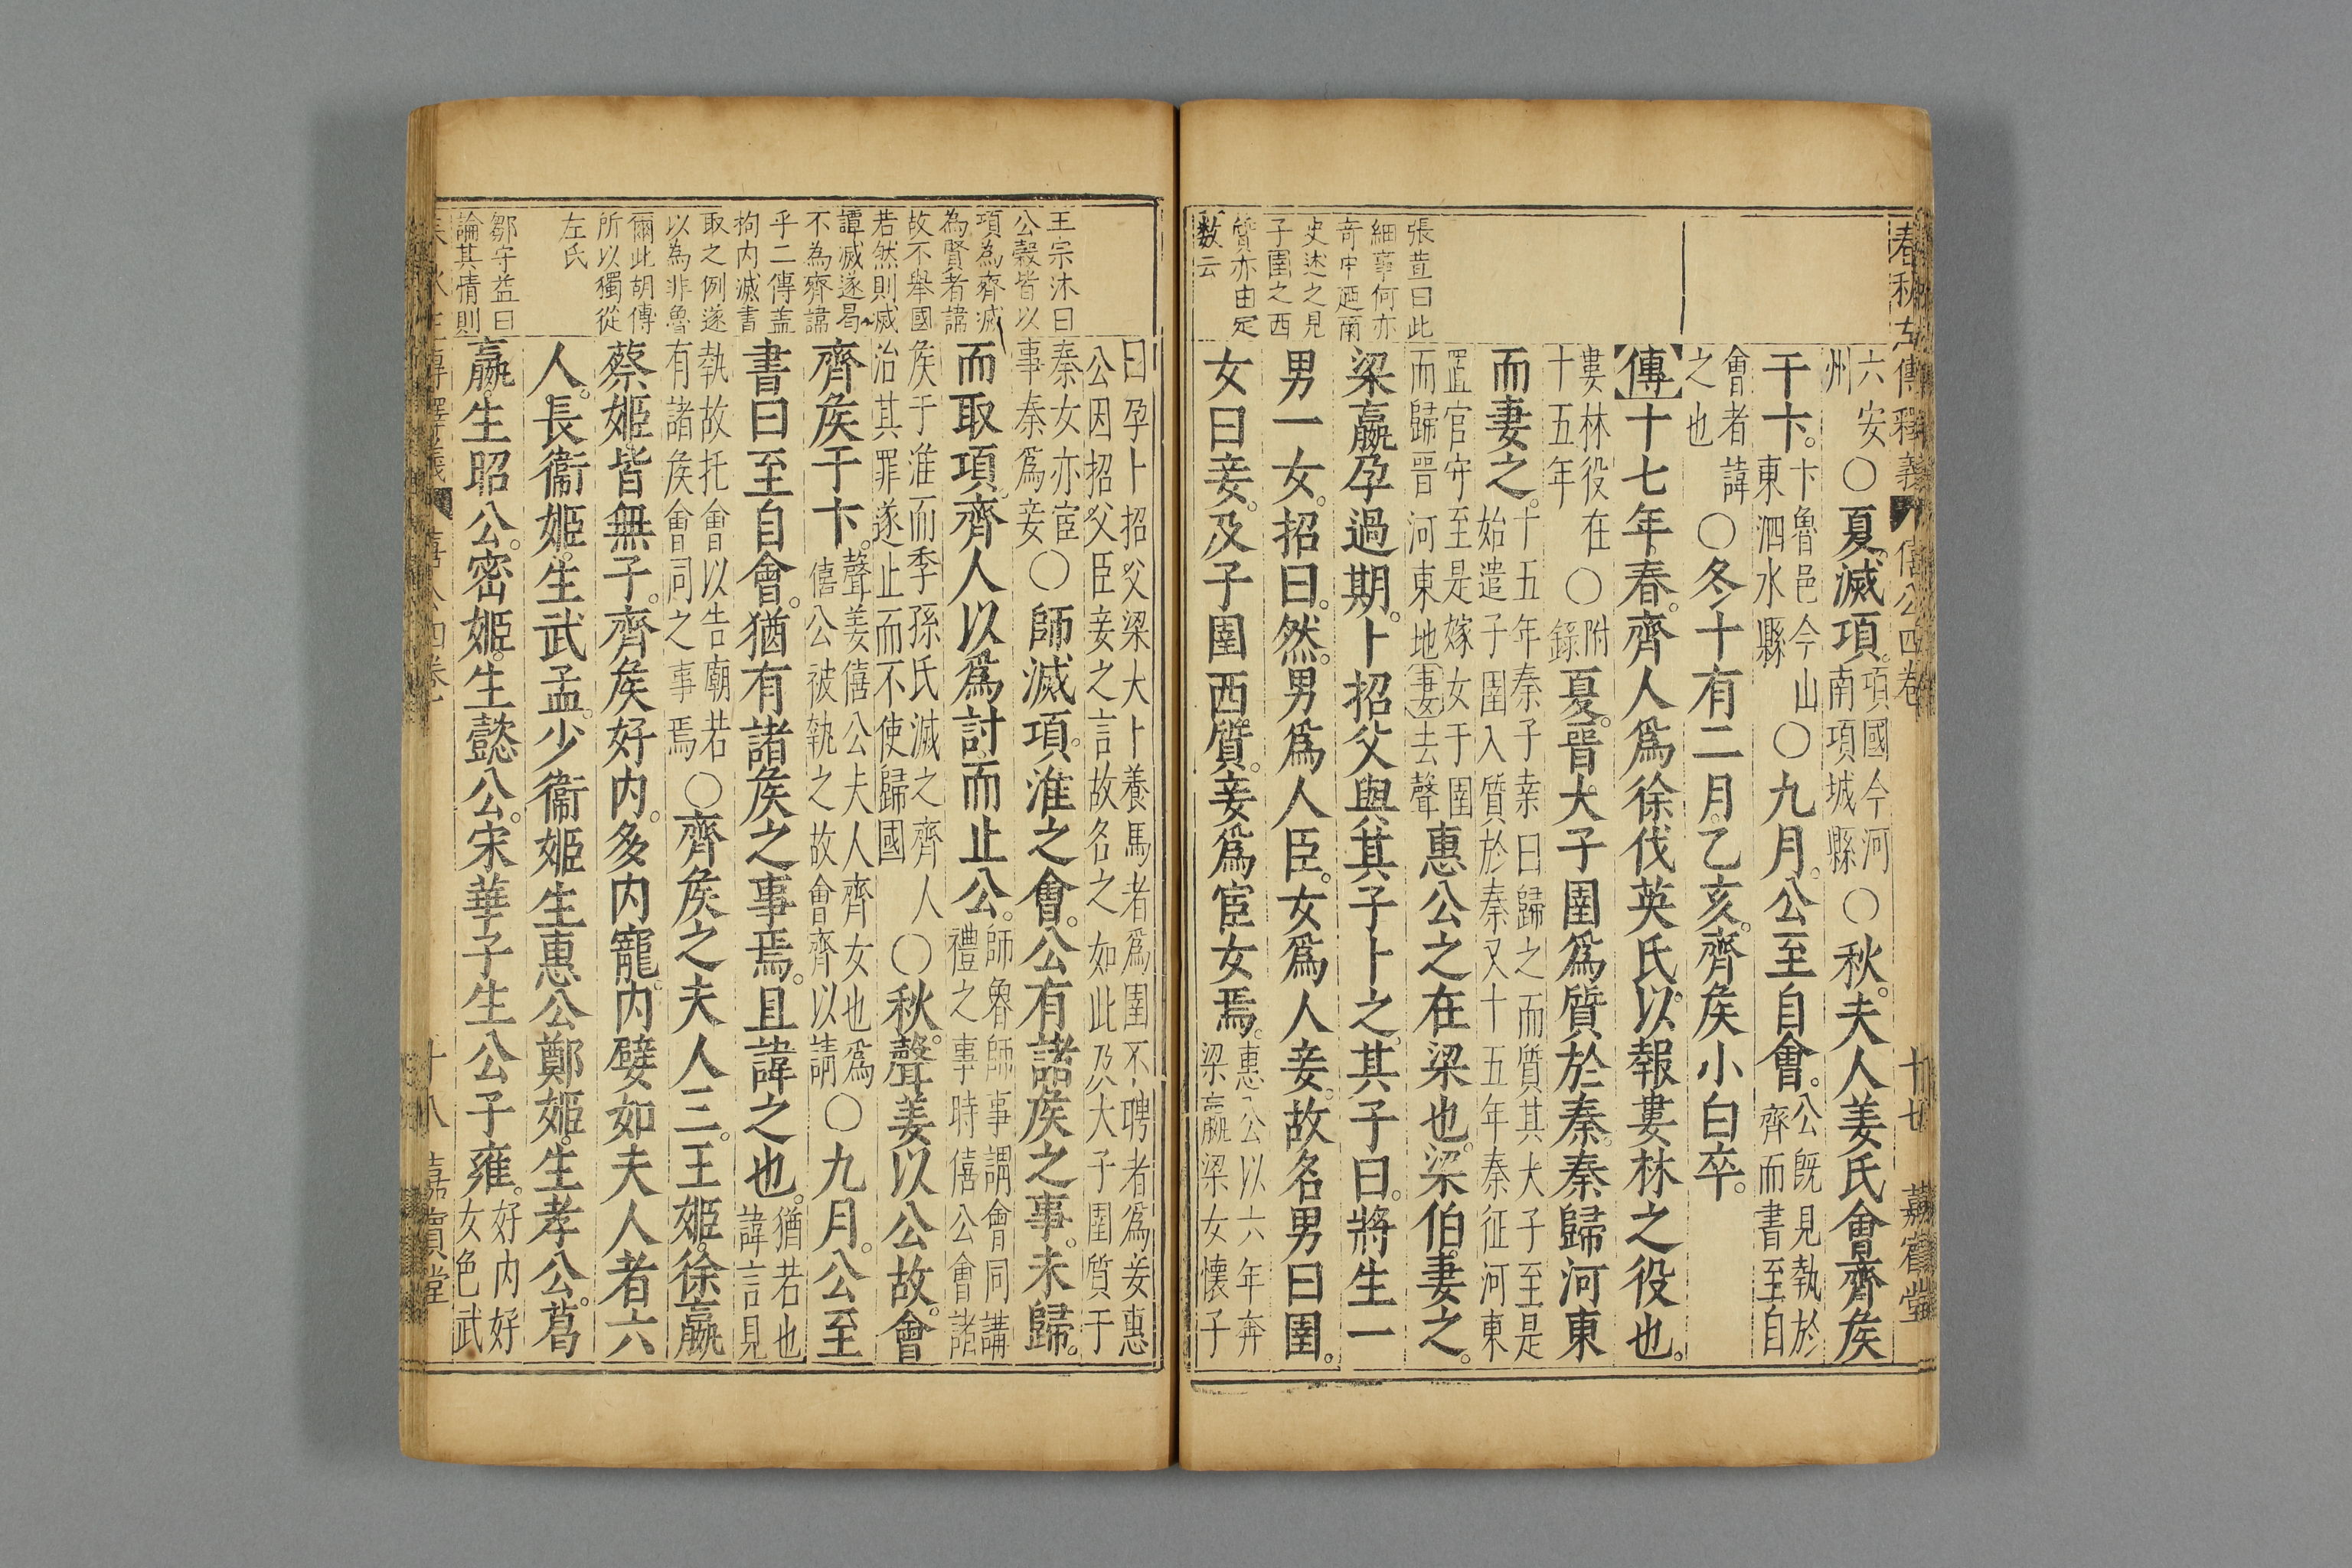 春秋左傳釋義 僖公四卷 十七 嘉賓堂
張萱曰此
細事何亦
奇中廼爾
史述之見
子圉之西
質亦由定
数云
六安
州
○夏滅項
項國今河
南項城縣
○秋夫人姜氏會齊侯
于卞
卞魯邑今山
東泗水縣
○九月公至自會
公既見執於
齊而書至自
會者諱
之也
○冬十有二月乙亥齊侯小白卒
傳十七年春齊人爲徐伐英氏以報婁林之役也
婁林役在
十五年
○附
錄
夏晋大子圉爲質於秦秦歸河東
而妻之
十五年秦子桒曰歸之而質其大子至是
始遣子圉入質於秦又十五年秦征河東
置官守至是嫁女于圉
而歸晋河東地妻去聲
惠公之在梁也梁伯妻之
梁嬴孕過期卜招父與其子卜之其子曰將生一
男一女招曰然男爲人臣女爲人妾故名男曰圉
女曰妾及子圉西質妾爲宦女焉
惠公以六年奔
梁嬴梁女懐子
王宗沐曰
公穀皆以
項為齊滅
為賢者諱
故不舉國
若然則滅
譚滅遂曷
不為齊諱
乎二傳盖
拘内滅書
取之例遂
以為非魯
爾此胡傳
所以獨從
左氏
鄒守益曰
論其情則
曰孕卜招父梁大卜養馬者爲圉不聘者爲妾惠
公因招父臣妾之言故名之如此及大子圉質于
秦女亦宦
事秦爲妾
○師滅項淮之會公有諸侯之事未歸
而取項齊人以爲討而止公
師魯師事謂會同講
禮之事時僖公會諸
侯于淮而季孫氏滅之齊人
治其罪遂止而不使歸國
○秋聲姜以公故會
齊侯于卞
聲姜僖公夫人齊女也爲
僖公被執之故會齊以請
○九月公至
書曰至自會猶有諸侯之事焉且諱之也
猶若也
諱言見
執故托會以告廟若
有諸侯會同之事焉
○齊侯之夫人三王姬徐嬴
蔡姬皆無子齊侯好内多内寵内嬖如夫人者六
人長衞姬生武孟少衞姬生惠公鄭姬生孝公葛
嬴生昭公密姬生懿公宋華子生公子雍
好内好
女色武
僖公四卷 十八 嘉賓堂